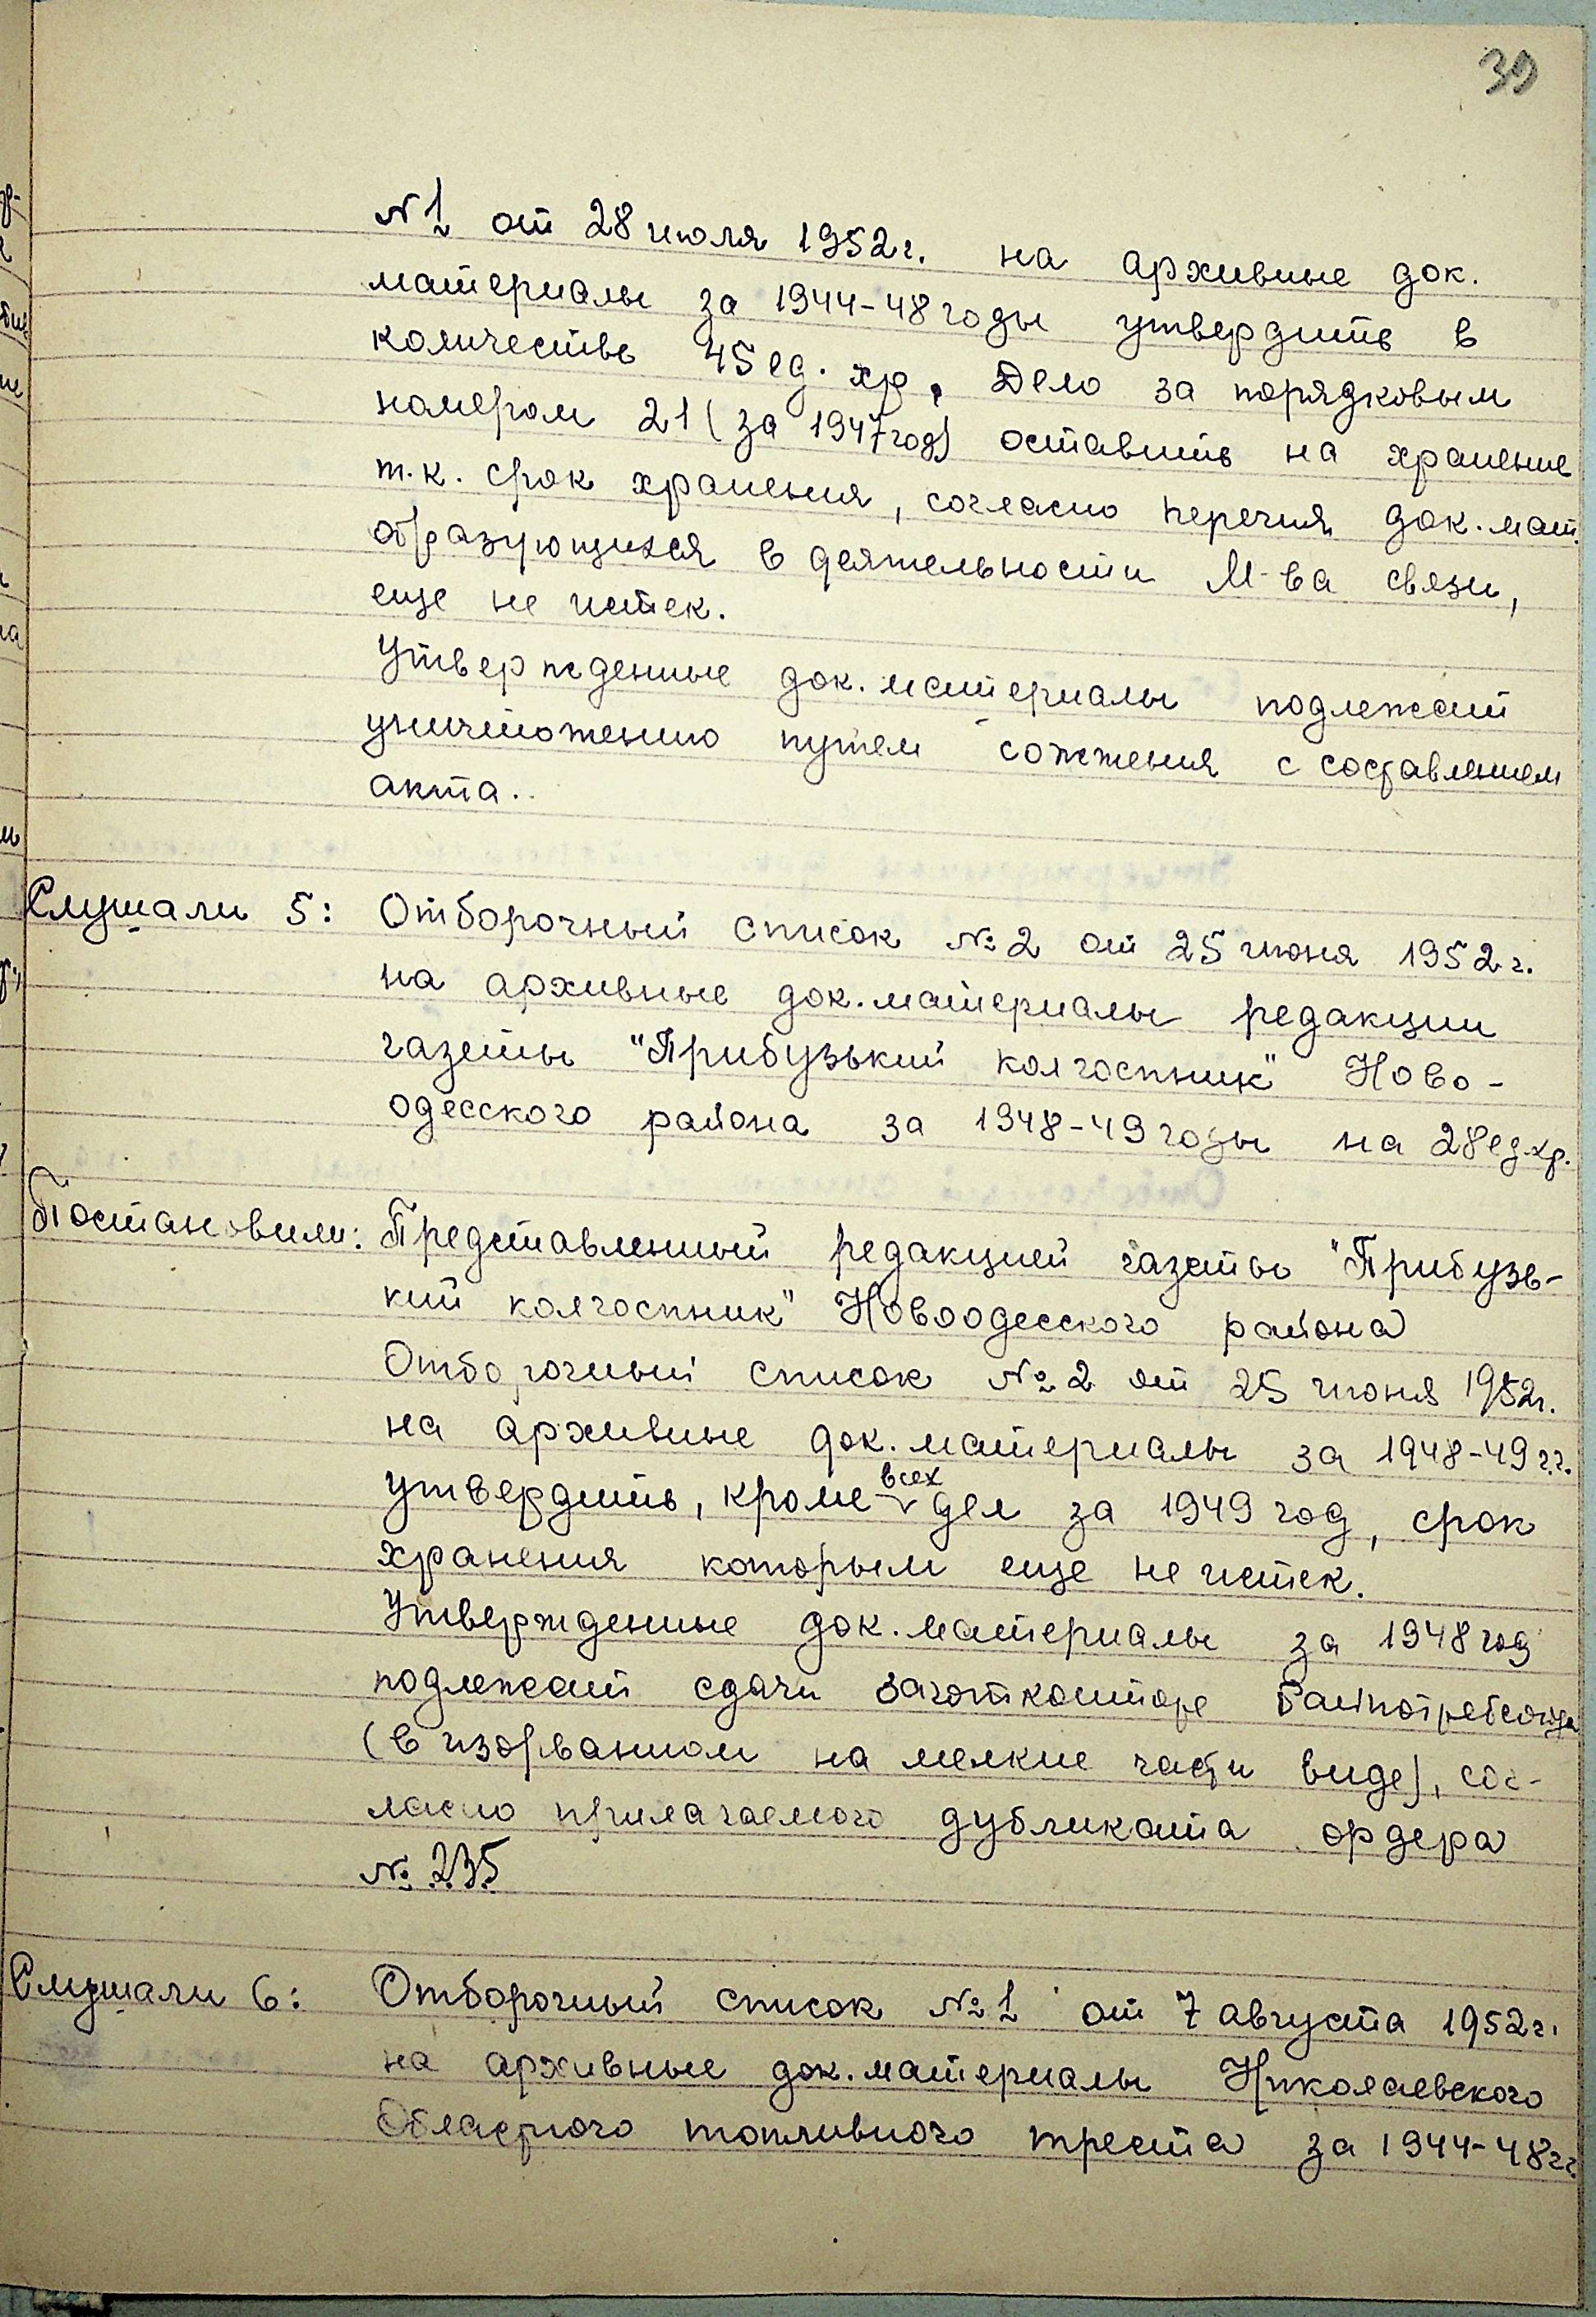 39
№1 от 28 июля 1952г. на архивные док.
материалы за 1944-48 годы утвердить в
количестве 45 ед. хр, Дело за порядковым
номером 21 (за 1947 год) оставить на хранение
т.к. срок хранения, согласно перечня док. мат.
образующихся в деятельности М-ва связи,
еще не истек.
Утвержденные док. материалы подлежат
уничтожению путем сожжения с составлением
акта..
Слушали 5: Отборочный список №2 от 25 июня 1952г.
на архивные док. материалы редакции
газеты "Прибузький колгоспник" Ново-
одесского района за 1948-49 годы на 28 ед.хр.
Постановили: Представленный редакцией газеты "Прибузь-
кий колгоспник" Новоодесского района
Отборочный список №2 от 25 июня 1952г.
на архивные док. материалы за 1948-49 г.г.
утвердить, кроме всех дел за 1949 год, срок
хранения которым еще не истек.
Утвержденные док. материалы за 1948 год
подлежат сдачи Заготконторе Райпотребсоюза
(в изорванном на мелкие части виде), сог-
ласно прилагаемого дубликата ордера
№ 235
Слушали 6: Отборочный список №1 от 7 августа 1952г.
на архивные док. материалы Николаевского
Областного топливного треста за 1944-48 гг.